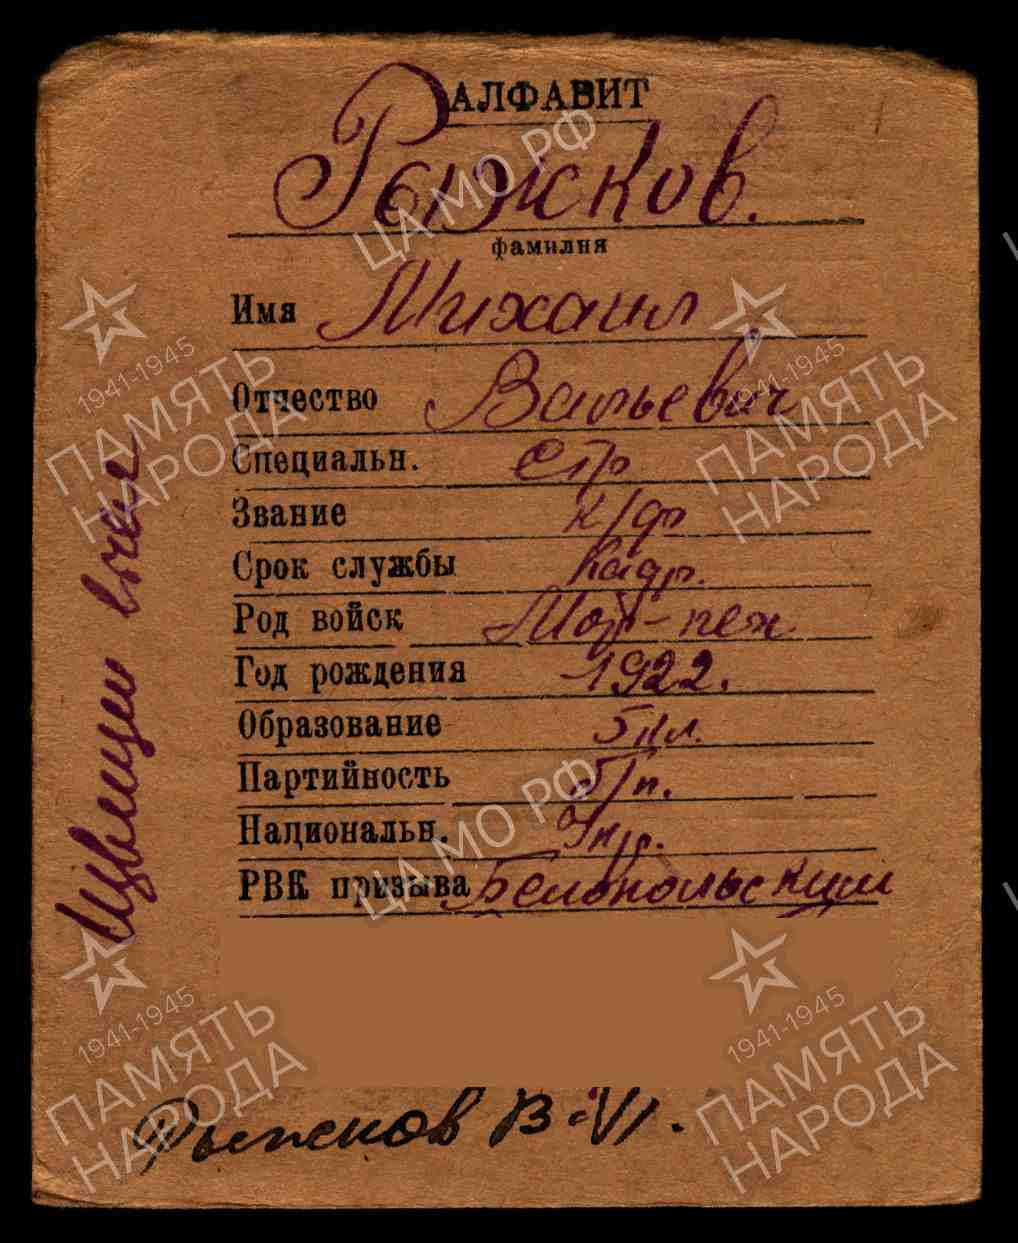 АЛФАВИТ
Рыжков.
фамилия
Имя Михаил
Отчество
Специальн. Стр
Звание к/ф
Срок службы Кадр.
Род войск Мот-пех
Год рождения 1922.
Образование 5 кл.
Партийность б/п.
Национальн. Укр.
РВК призыва Белопольским
Рыжков
ЦА МО РФ
1941-1945
ПАМЯТЬ
НАРОДА
1941-1945
ПАМЯТЬ
НАРОДА
ЦА МО РФ
1941-1945
ПАМЯТЬ
НАРОДА
1941-1945
ПАМЯТЬ
НАРОДА